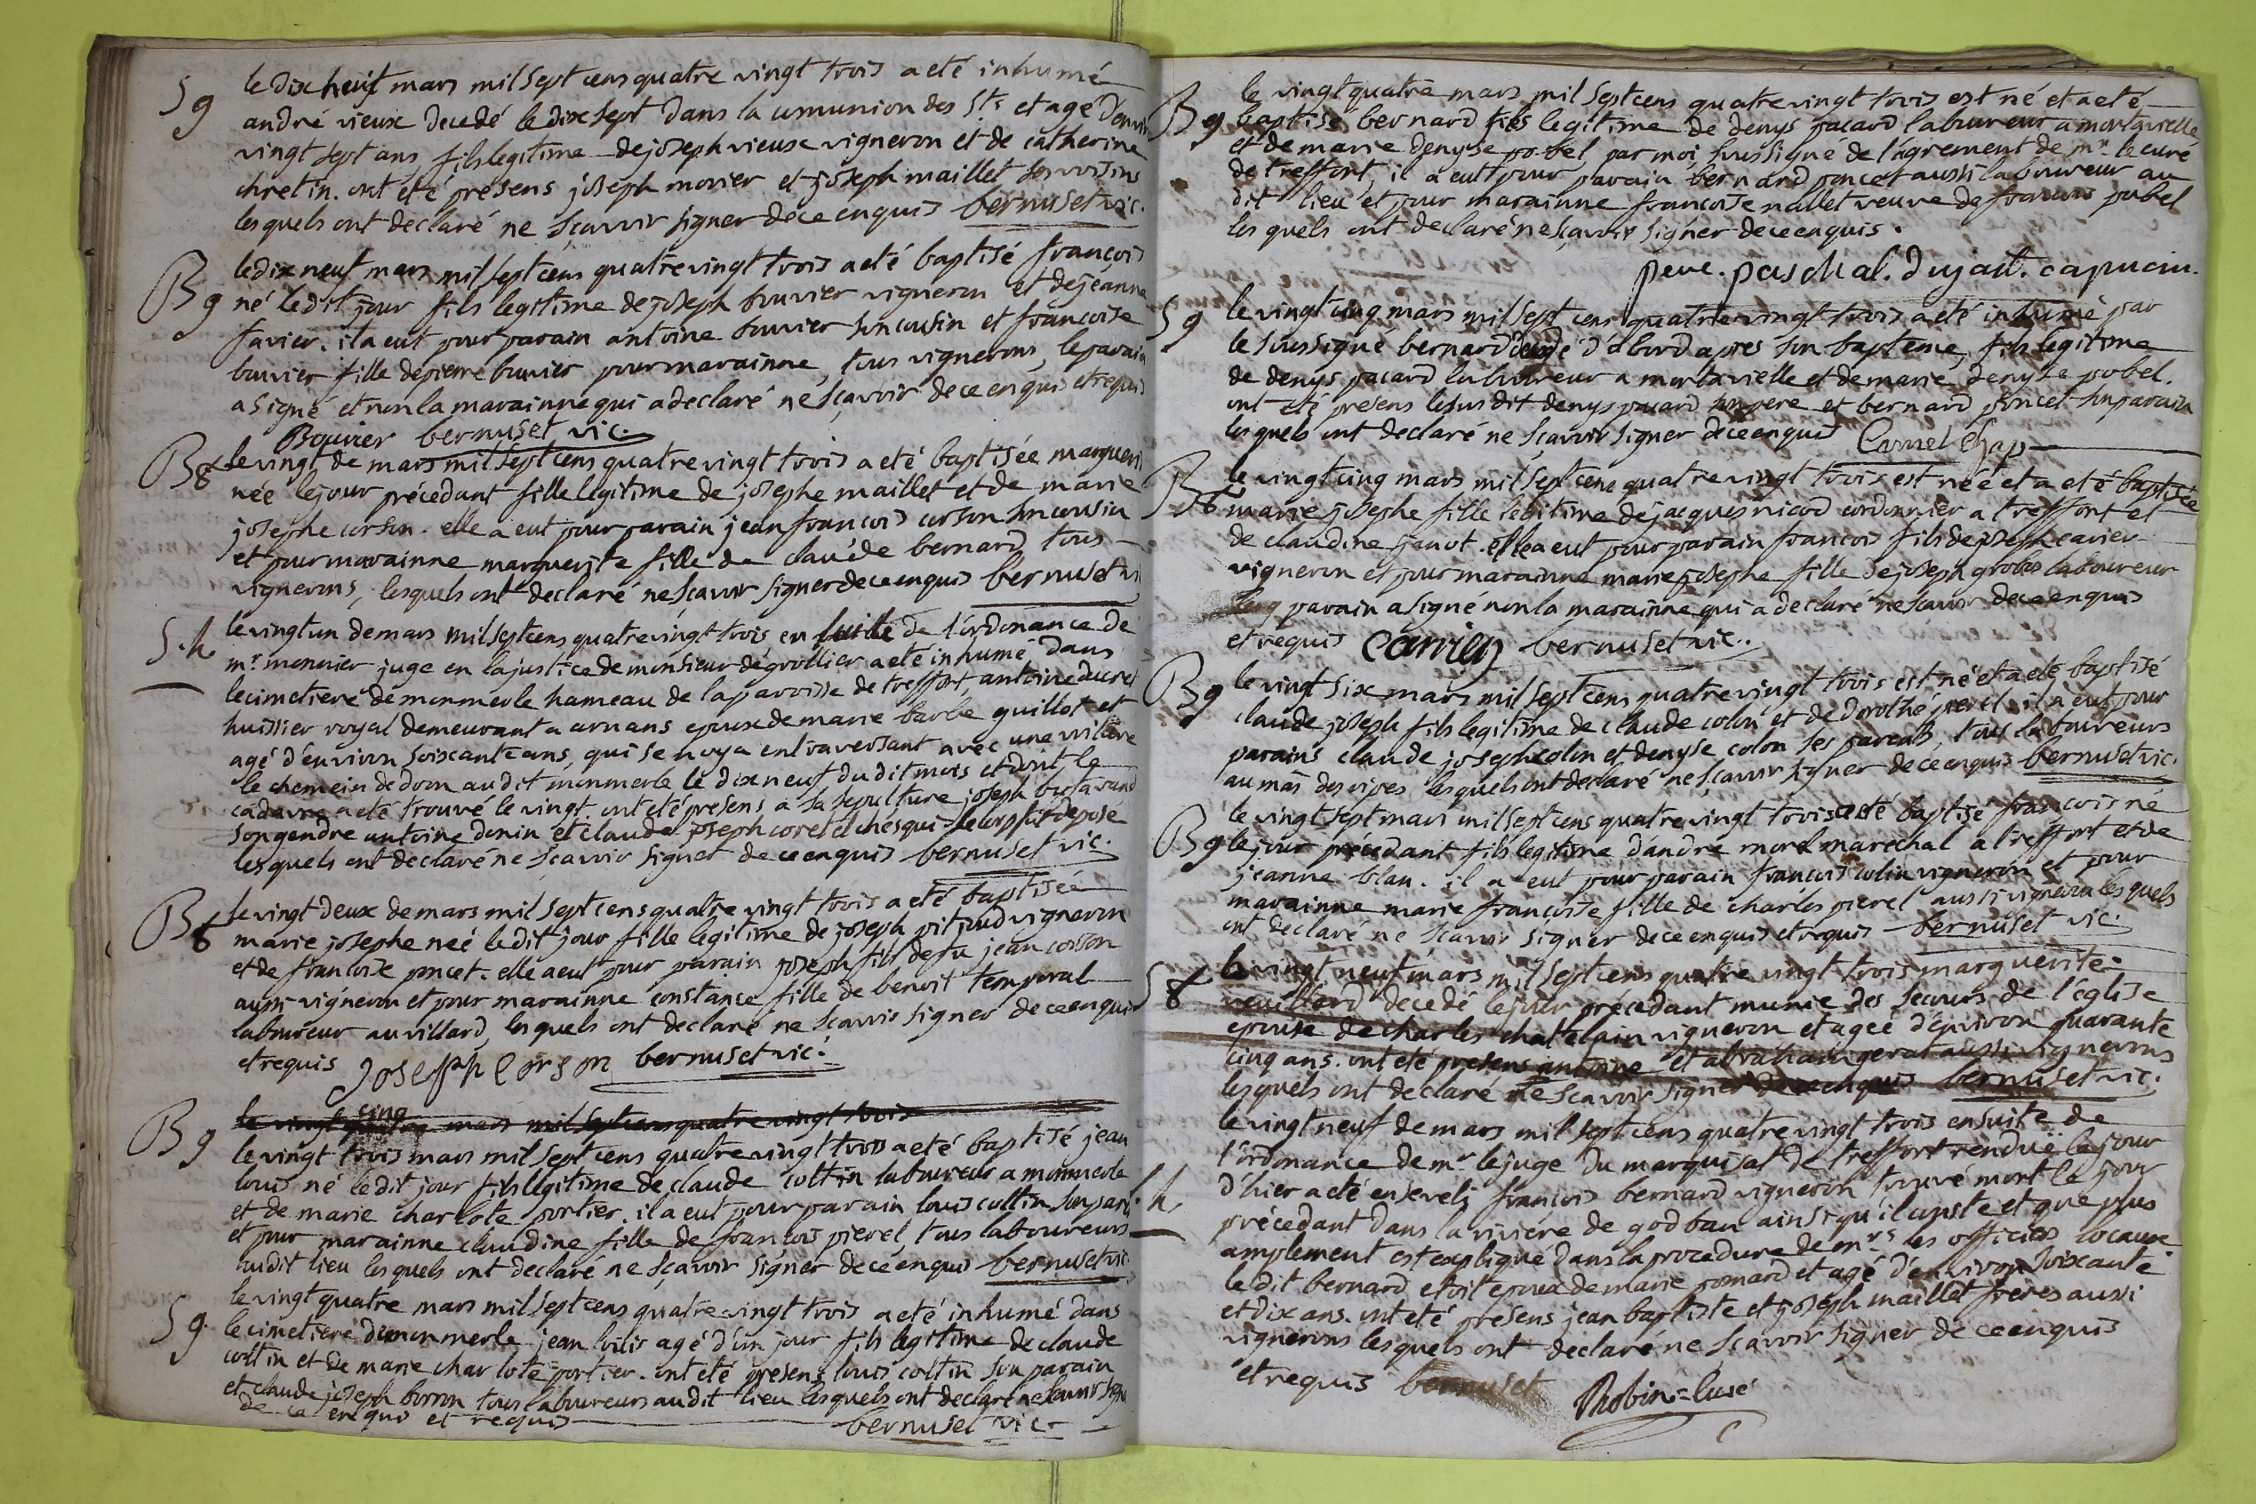 S g
le dix heuit mars mil sept cens quatre vingt trois a eté inhumé
andré vieux decedé le dix sept dans la comunion des Sts. et agé d'environ
vingt sept ans, fils legitime de joseph vieux vigneron et de catherine
chretin. ont été présens joseph monier et joseph maillet ses voisins
lesquels ont declaré ne sçavoir signer de ce enquis bernuset vic.
B g
le dix neuf mars mil sept cens quatre vingt trois a eté baptisé françois
né le dit jour fils legitime de joseph bouvier vigneron et de jeanne
favier. il a eut pour parain antoine bouvier son cousin et francoise
bouvier fille de pierre buvier pour marainne, tous vignerons, le parain
a signé et non la marainne qui a declaré ne sçavoir de ce enquis et requis
Bouvier bernuset vic.
B f
le vingt de mars mil sept cens quatre vingt trois a eté baptisée margueri
née le jour précédant fille legitime de josephe maillet et de marie
josephe corson. elle a eut pour parain jean francois corson son cousin
et pour marainne marguerite fille de claude bernard tous
vignerons, lesquels ont declaré ne sçavoir signer de ce enquis bernuset vi
S. h
le vingt un de mars mil sept cens quatre vingt trois en suite de l'ordonance de
mr. monnier juge en la justice de monsieur de grollier a eté inhumé dans
le cimetiere de monmerle hameau de la paroisse de treffort, antoine ducret
huissier royal demeurant a arnans epoux de marie barbe guillot et
agé d'environ soixante ans, qui se noya en traversant avec une
le chemein de drom au dit monmerle le dix neuf du dit mois et dont le
cadavre a eté trouvé le vingt. ont eté présens à sa sepulture joseph butavand
son gendre antoine denin et claude joseph corel chés qui le corps fut déposé
lesquels ont declaré ne sçavoir signer de ce enquis bernuset vic.
B f
le vingt deux de mars mil sept cens quatre vingt trois a eté baptisée
marie josephe neé le dit jour fille legitime de joseph pitiud vigneron
et de francoise poncet. elle a eut pour parain joseph fils de fu jean corson
aussi vigneron et pour marainne constance fille de benoit temporal
laboureur au villard, lesquels ont declaré ne scavoir signer de ce enquis
et requis joseph corson bernuset vic.
B g
le vingt cinq mars mil sept cens quatre vingt trois
le vingt trois mars mil sept cens quatre vingt trois a eté baptisé jean
louis né le dit jour fils legitime de claude coltin laboureur a monmerle
et de marie charlote portier. il a eut pour parain louis coltin son parl.
et pour marainne claudine fille de francois pierel tous laboureurs
audit lieu lesquels ont declaré ne sçavoir signer de ce enquis bernuset vic.
S g.
le vingt quatre mars mil sept cens quatre vingt trois a eté inhumé dans
le cimetiere de monmerle jean louis agé d'un jour fils legitime de claude
coltin et de marie charlote portier. ont eté presens louis coltin son parain
et claude joseph borron tous laboureurs audit lieu lesquels ont declaré ne scavoir signer
de ce enquis et requis bernuset vic.
B g
le vingt quatre mars mil sept cens quatre vingt trois est né et a eté
baptisé bernard fils legitime de denys pacard laboureur a montavielle
et de marie denyse pobel, par moi soussigné de l'agrement de mr. le curé
de treffort, il a eut pour parain bernard poncet aussi laboureur au
dit lieu et pour marainne francoise nallet veuve de francois pobel
lesquels ont declaré ne sçavoir signer de ce enquis.
pere. paschal. dujast. capucin.
S g
le vingt cinq mars mil sept cens quatre vingt trois a eté inhumé par
le soussigné bernard decedé d'abord apres son bapteme, fils legitime
de denys pacard laboureur a montavielle et de marie denyse pobel.
ont eté presens le susdit denys pacard son pere et bernard poncet son parain
lesquels ont declaré ne sçavoir signer de ce enquis Camel Chap
B f
le vingt cinq mars mil sept cens quatre vingt trois est née et a eté baptisée
marie josephe fille legitime de jacques nicod cordonnier a treffort et
de claudine janot. elle a eut pour parain francois fils de joseph carier
vigneron et pour marainne marie josephe fille de joseph grobos laboureur
le parain a signé non la marainne qui a declaré ne scavoir de ce enquis
et requis Carrier bernuset vic.
B g
le vingt six mars mil sept cens quatre vingt trois est né et a eté baptisé
claude joseph fils legitime de claude colon et de dorothé pierel. il a eut pour
parains claude joseph colon et denyse colon ses parents, tous laboureurs
au mas des vipres lesquels ont declaré ne sçavoir signer de ce enquis bernuset vic.
B g
le vingt sept mars mil sept cens quatre vingt trois a eté baptisé françois né
le jour précédant fils legitime d'andre morel marechal a treffort et de
jeanne blan. il a eut pour parain francois colin vigneron et pour
marainne marie francoise fille de charles pierel aussi vigneron lesquels
ont declaré ne scavoir signer de ce enquis et requis bernuset vic.
S f
le vingt neuf mars mil sept cens quatre vingt trois marguerite
decedé le jour precedant munie des secours de l'église
epouse de charles chatelain vigneron et ageé d'environ quarante
cinq ans. ont eté presens antoine et abraham gerat aussi vignerons
lesquels ont declaré ne scavoir signer de ce enquis bernuset vic.
S. h.
le vingt neuf de mars mil sept cens quatre vingt trois ensuite de
l'ordonance de mr. le juge du marquisat de treffort renduë le jour
d'hier a eté enseveli françois bernard vigneron trouvé mort le jour
précedant dans la riviere de godban ainsi qu'il conste et que plus
amplement est expliqué dans la procedure de mrs. les officiers locaux
le dit bernard etoit epoux de marie pomard et agé d'environ soixante
et dix ans. ont eté présens jean baptiste et joseph maillet freres aussi
vignerons lesquels ont declaré ne sçavoir signer de ce enquis
et requis bernuset Robin=Curé